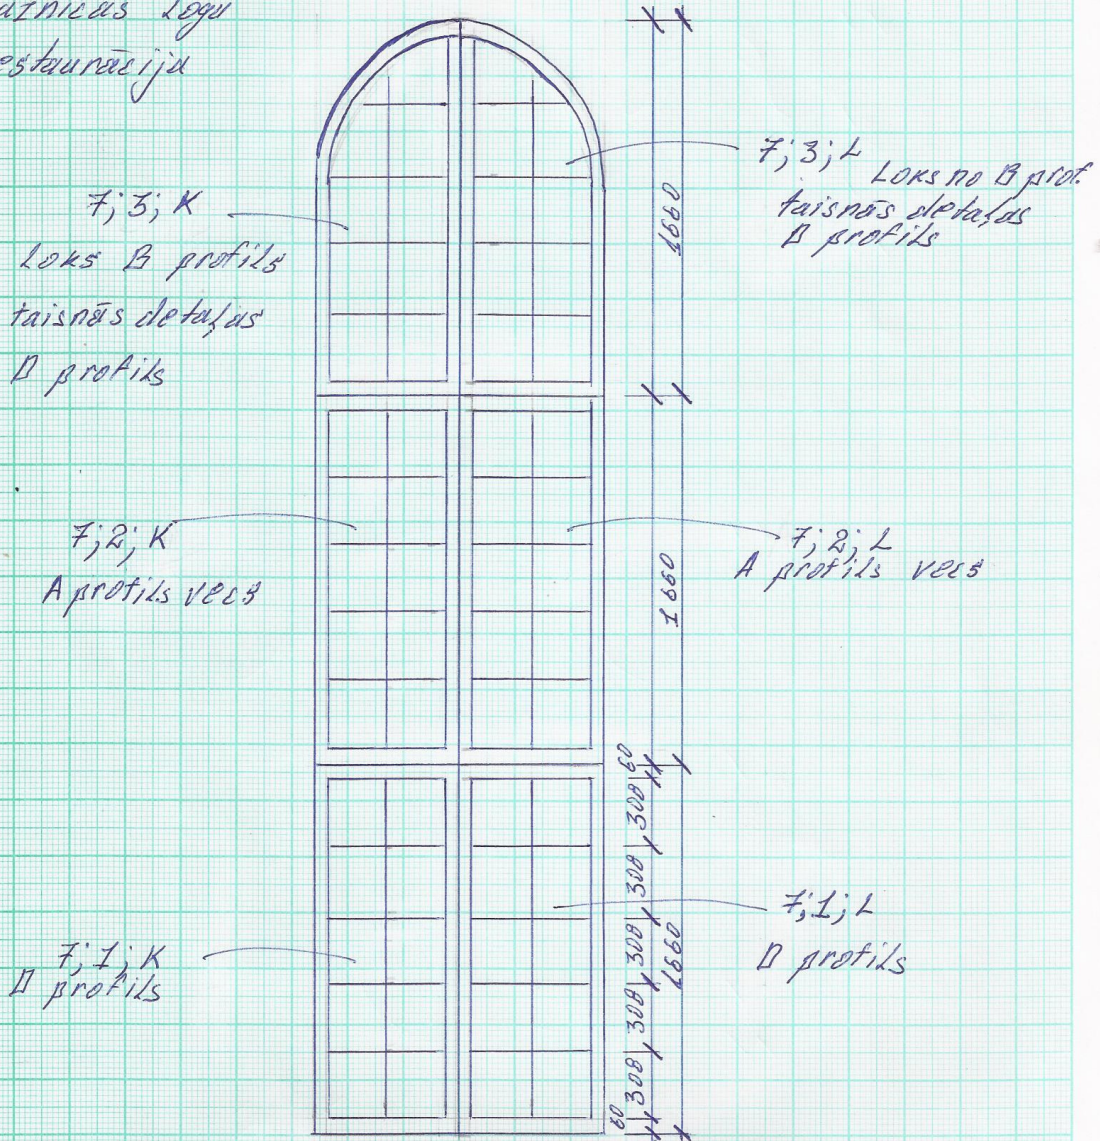 aznīcas Logu
estaurāciju
7; 3; L
Loks no B prof.
taisnās detaļas
D profils
7; 3; K
Loks B profils
taisnās detaļas
D profils
1660
7; 2; K
A profils vecs
7; 2; L
A profils vecs
1660
60
308
308
308
308
308
60
1660
7; 1; L
D profils
7; 1; K
D profils